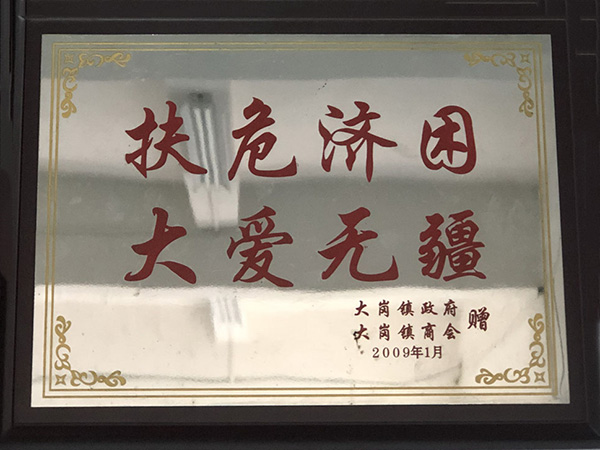 扶危济困
大爱无疆
大岗镇政府
大岗镇商会 赠
2009年1月